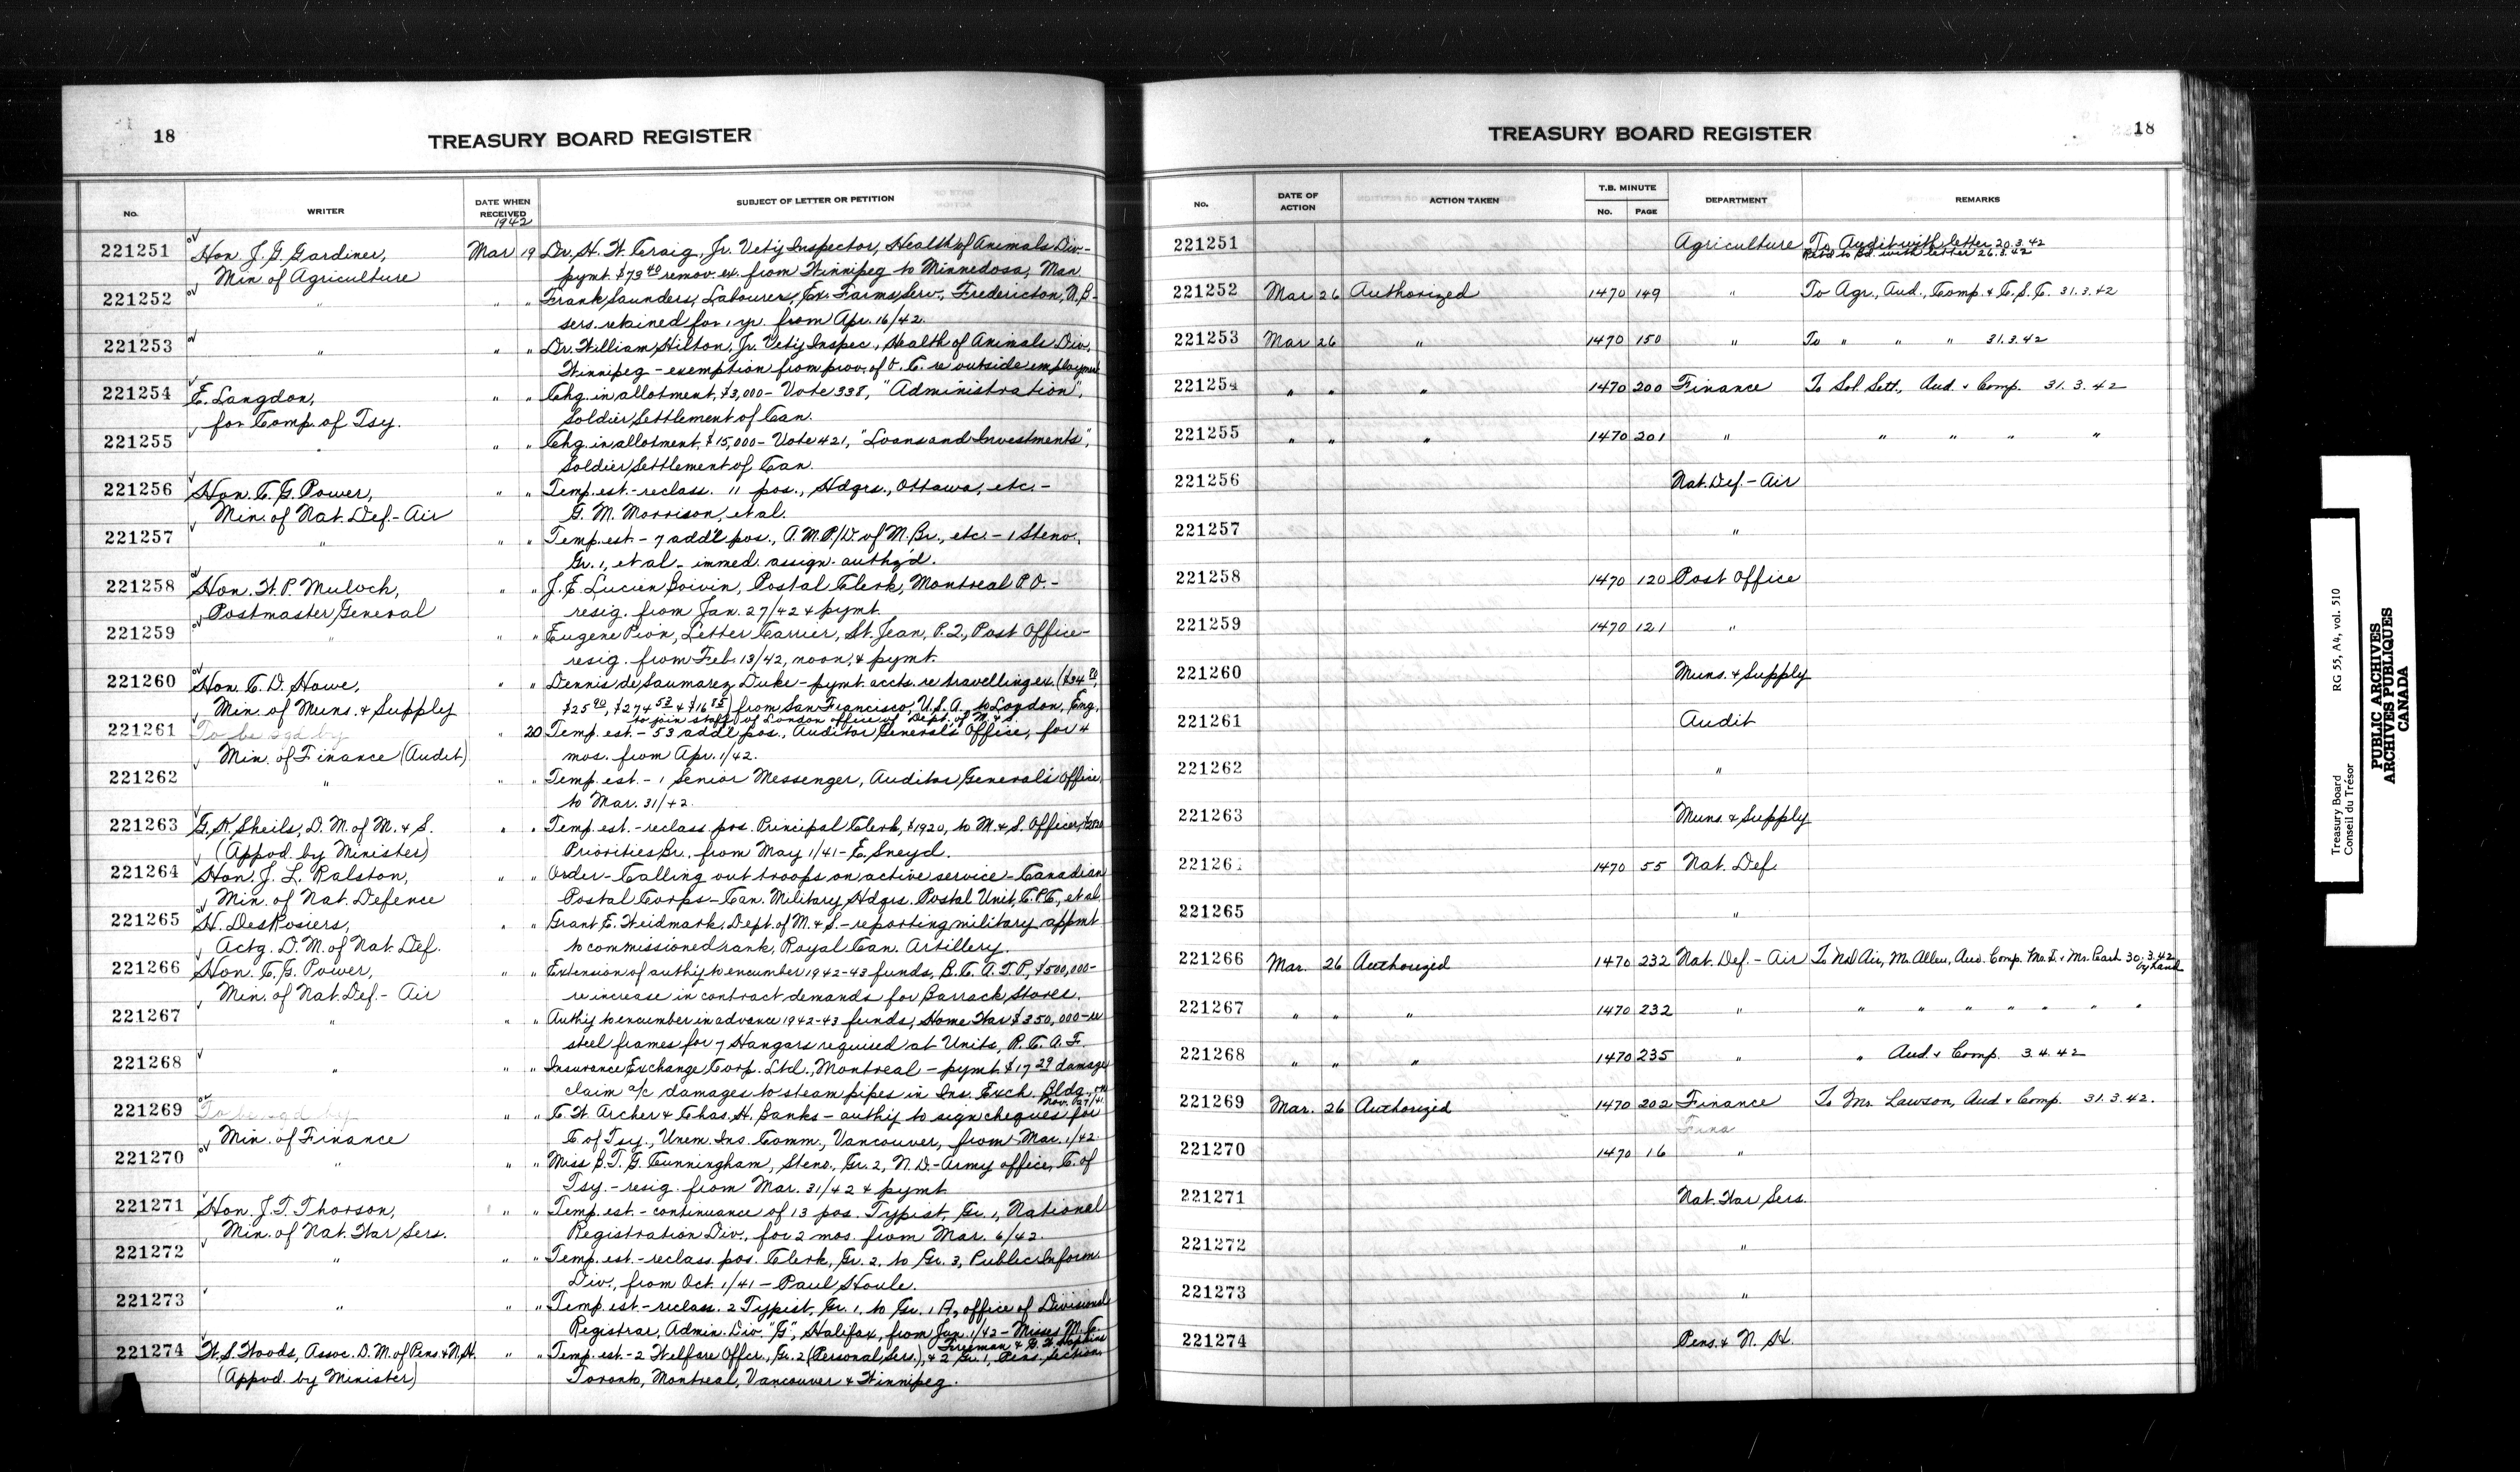 18
TREASURY BOARD REGISTER
No.
WRITER
DATE WHEN
RECEIVED
1942
SUBJECT OF LETTER OR PETITION
221251 Hon. J. G. Gardiner, Mar 19 Dr. H. W. Craig, Jr. Vet'y Inspector, Health of Animals Div.-
Min. of Agriculture pymt. $73.40 remov. ex. from Winnipeg to Minnedosa, Man.
221252 " " " Frank Saunders, Labourer, Ex. Farms Serv., Fredericton, N.B.-
sers. retained for 1 yr. from Apr. 16/42.
221253 " " " Dr. William Hilton, Jr. Vet'y Inspec., Health of Animals Div.,
Winnipeg - exemption from prov. of O. C. re outside employment
221254 E. Langdon, " " Chg. in allotment, $3,000 - Vote 338, "Administration",
for Comp. of Tsy. Soldier Settlement of Can.
221255 " " " Chg. in allotment, $15,000 - Vote 421, "Loans and Investments",
Soldier Settlement of Can.
221256 Hon. C. G. Power, " " Temp. est. - reclass. 11 pos., Hdqrs., Ottawa, etc. -
Min. of Nat. Def. - Air G. M. Morrison, et al.
221257 " " " Temp. est. - 7 add'l pos., A.M.P./D. of M. Br., etc. - 1 Steno.,
Gr. 1, et al - immed. assign. auth'z'd.
221258 Hon. W. P. Mulock, " " J. E. Lucien Boivin, Postal Clerk, Montreal P.O. -
Postmaster General resig. from Jan. 27/42 & pymt.
221259 " " " Eugene Pion, Letter Carrier, St. Jean, P.Q., Post Office -
resig. from Feb. 13/42, noon, & pymt.
221260 Hon. C. D. Howe, " " Dennis de Saumarez Duke - pymt. accts. re travelling ex.
Min. of Muns. & Supply from San Francisco, U.S.A. to London, Eng.
to join staff of London office of Dept. of M. & S.
221261 To be sgd by " 20 Temp. est. - 53 add'l pos., Auditor General's Office, for 4
Min. of Finance (Audit) mos. from Apr. 1/42.
221262 " " " Temp. est. - 1 Senior Messenger, Auditor General's Office,
to Mar. 31/42.
221263 G. K. Sheils, D. M. of M. & S. " " Temp. est. - reclass. pos. Principal Clerk, $1920, to M. & S. Officer,
(Appvd. by Minister) Priorities Br., from May 1/41 - E. Sneyd.
221264 Hon. J. L. Ralston, " " Order - Calling out troops on active service - Canadian
Min. of Nat. Defence Postal Corps - Can. Military Hdqrs. Postal Unit, C.P.C., et al.
221265 H. DesRosiers, " " Grant E. Weidmark, Dept. of M. & S. - reporting military appmt.
Actg. D. M. of Nat. Def. to commissioned rank, Royal Can. Artillery.
221266 Hon. C. G. Power, " " Extension of auth'y to encumber 1942-43 funds, B.C.A.T.P., $500,000 -
Min. of Nat. Def. - Air re increase in contract demands for Barrack Stores.
221267 " " " Auth'y to encumber in advance 1942-43 funds, Home War $350,000 - re
steel frames for 7 Hangars required at Units, R.C.A.F.
221268 " " " Insurance Exchange Corp. Ltd., Montreal - pymt. $17.29 damage
claim a/c damages to steam pipes in Ins. Exch. Bldg.
Nov. 27/41.
221269 To be sgd by " " C. W. Archer & Chas. H. Banks - auth'y to sign cheques for
Min. of Finance C. of Tsy., Unem. Ins. Comm., Vancouver, from Mar. 1/42.
221270 " " " Miss B. T. G. Cunningham, Steno., Gr. 2, N.D. - Army office, C. of
Tsy. - resig. from Mar. 31/42 & pymt.
221271 Hon. J. T. Thorson, " " Temp. est. - continuance of 13 pos. Typist, Gr. 1, National
Min. of Nat. War Sers. Registration Div., for 2 mos. from Mar. 6/42.
221272 " " " Temp. est. - reclass. pos. Clerk, Gr. 2, to Gr. 3, Public Inform.
Div., from Oct. 1/41 - Paul Houle.
221273 " " " Temp. est. - reclass. 2 Typist, Gr. 1, to Gr. 1A, office of Divisional
Registrar, Admin. Div. "G", Halifax, from Jan. 1/42 - Misses M. C.
Freeman & G. F. Hopkins
221274 W. S. Woods, Assoc. D. M. of Pens. & N.H. " " Temp. est. - 2 Welfare Offcr., Gr. 2 (Personal Sers.), & 2 Gr. 1, Pens. Section,
(Appvd. by Minister) Toronto, Montreal, Vancouver & Winnipeg.
TREASURY BOARD REGISTER
18
No.
DATE OF
ACTION
ACTION TAKEN
T.B. MINUTE
No. PAGE
DEPARTMENT
REMARKS
221251 Agriculture To Audit with letter 20.3.42
Ret'd to Bd. with letter 26.3.42
221252 Mar 26 Authorized 1470 149 " To Agr., Aud., Comp. & C.S.C. 31.3.42
221253 Mar 26 " 1470 150 " To " " " 31.3.42
221254 " " " 1470 200 Finance To Sol. Sett., Aud. & Comp. 31.3.42
221255 " " " 1470 201 " " " " "
221256 Nat. Def. - Air
221257 "
221258 1470 120 Post Office
221259 1470 121 "
221260 Muns. & Supply
221261 Audit
221262 "
221263 Muns. & Supply
22126 1470 55 Nat. Def.
221265 "
221266 Mar. 26 Authorized 1470 232 Nat. Def. - Air To Nd Air, Mr. Allen, Aud. Comp. & Mr. Cash 30.3.42
by hand
221267 " " " 1470 232 " " " " " " " "
221268 " " " 1470 235 " " Aud. & Comp. 3.4.42
221269 Mar. 26 Authorized 1470 202 Finance To Mr. Lawson, Aud & Comp. 31.3.42.
Fina
221270 1470 16 "
221271 Nat. War Sers.
221272 "
221273 "
221274 Pens. & N. H.
Treasury Board
Conseil du Trésor
RG 55, A4, vol. 510
PUBLIC ARCHIVES
ARCHIVES PUBLIQUES
CANADA